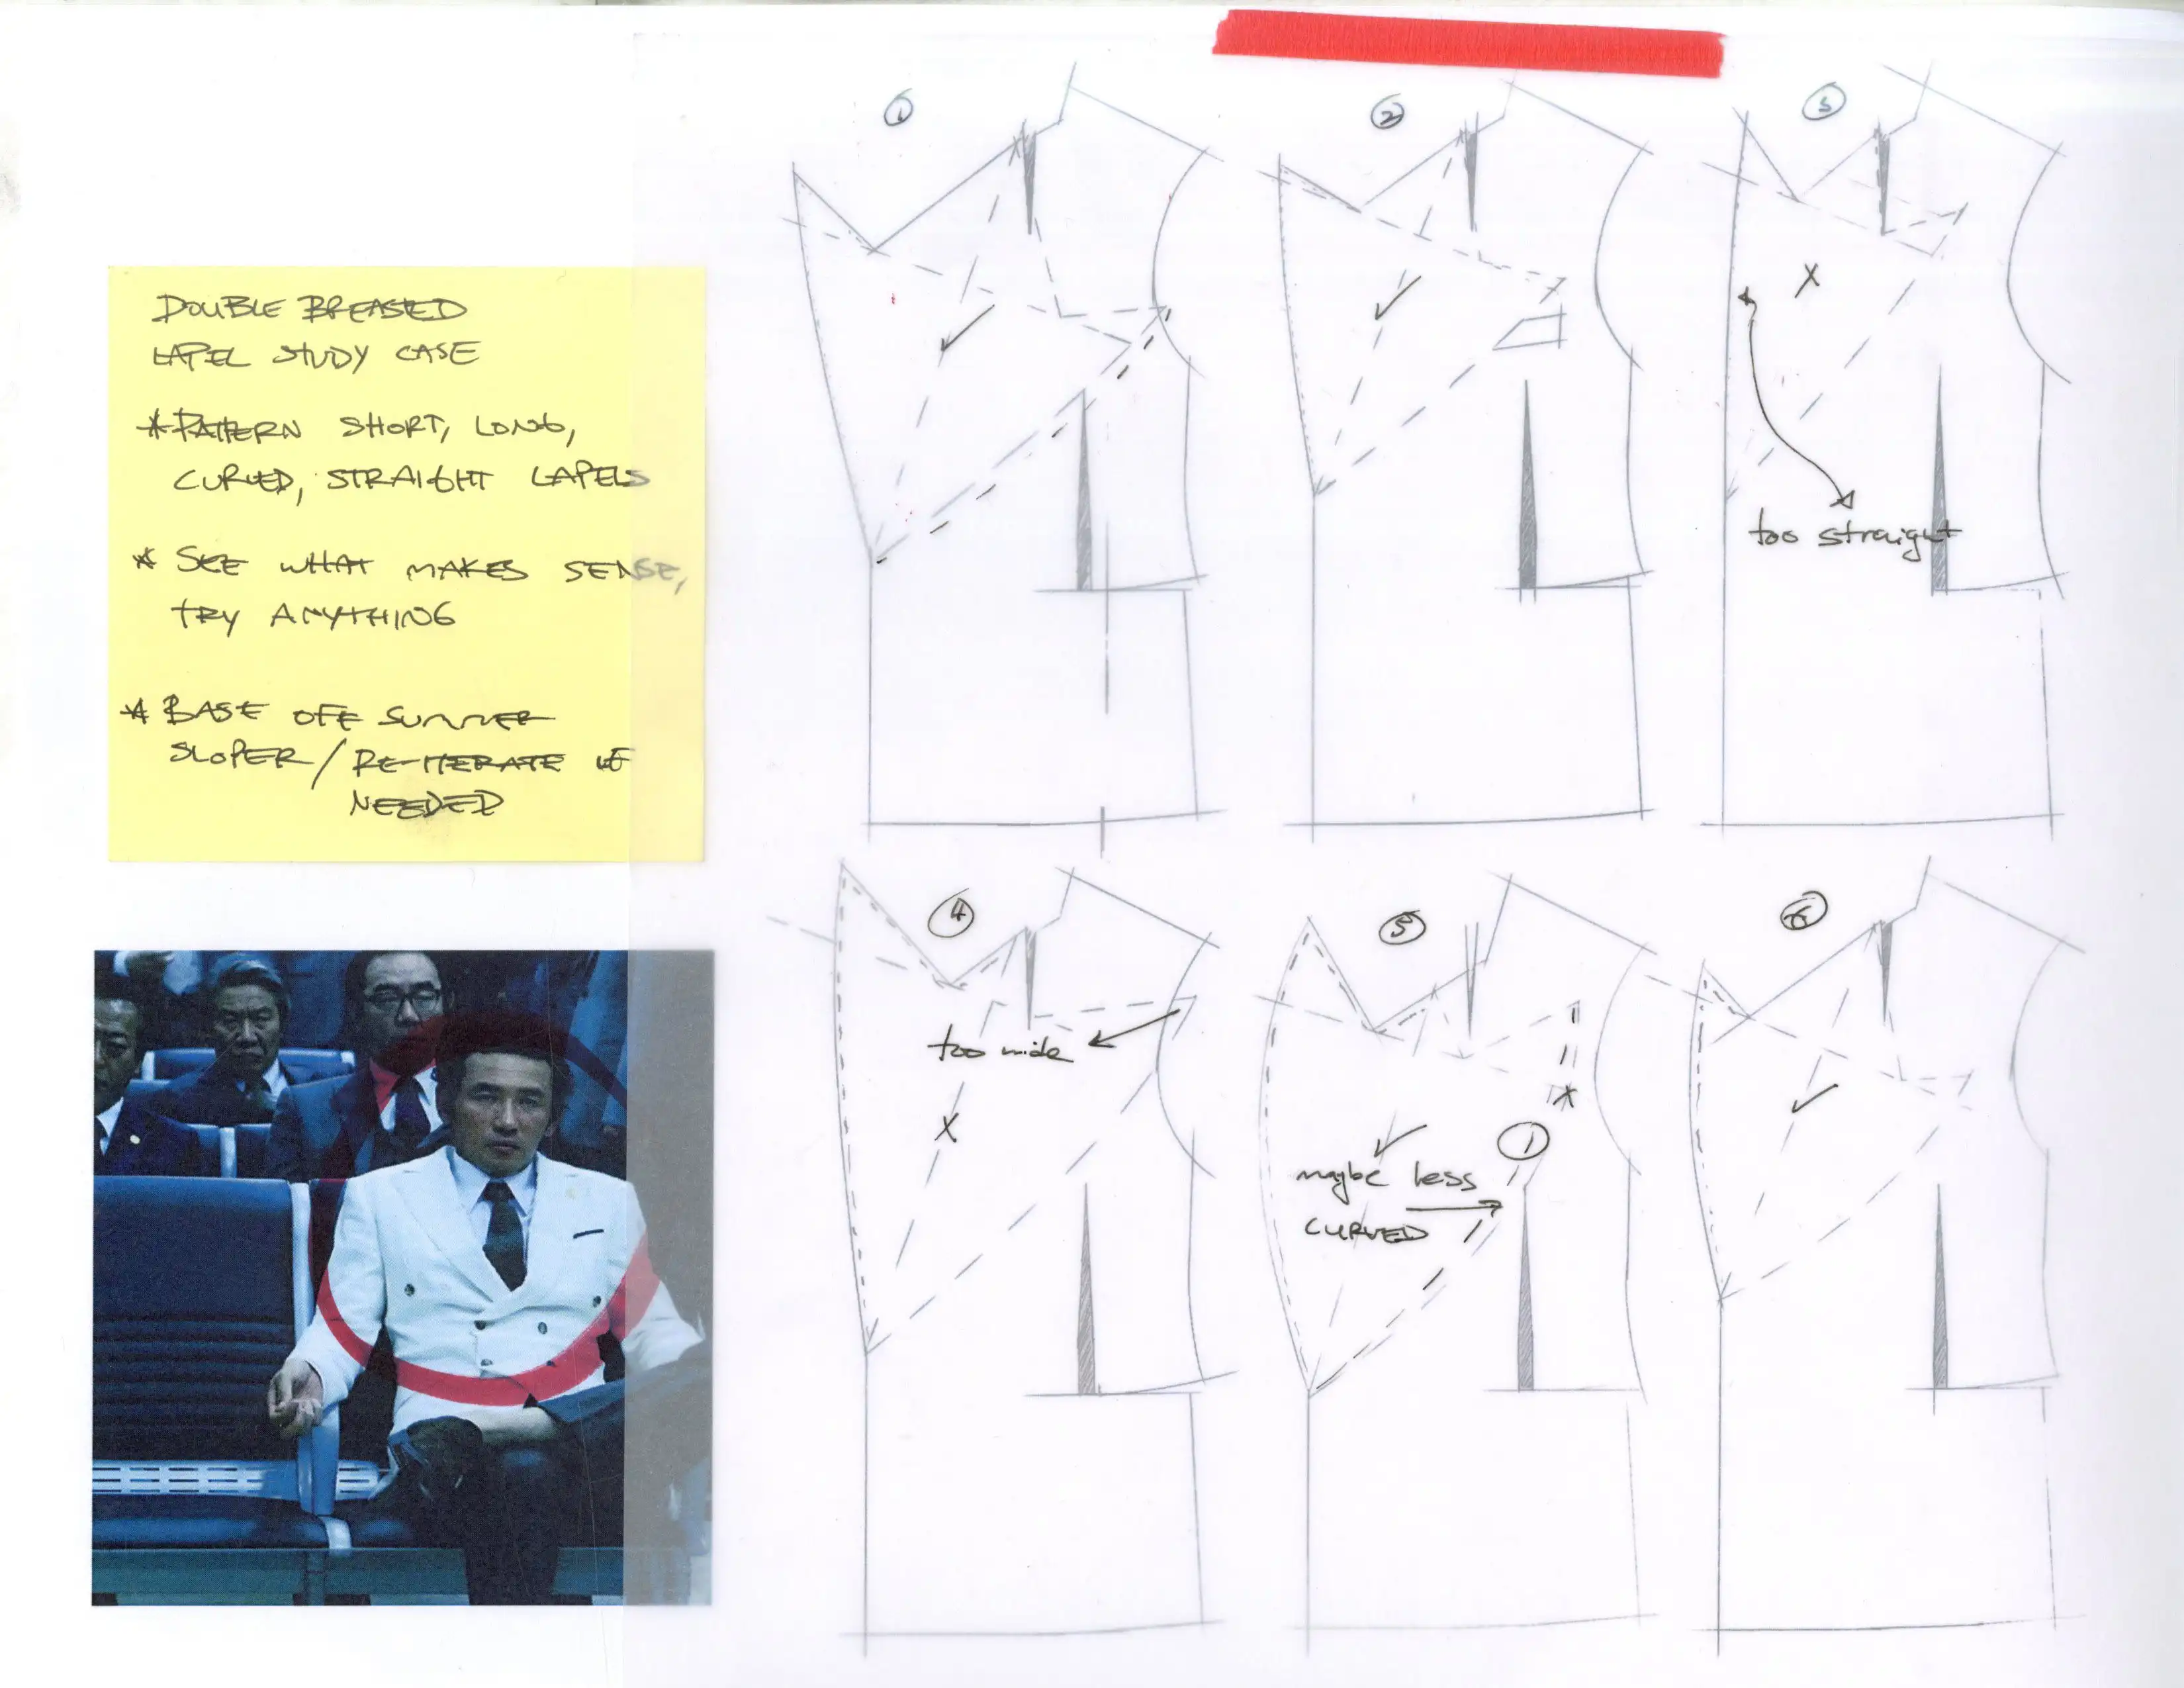 DOUBLE BREASTED
LAPEL STUDY CASE
* PATTERN SHORT, LONG,
CURVED, STRAIGHT LAPELS
* SEE WHAT MAKES SENSE,
TRY ANYTHING
* BASE OFF SUMMER
SLOPER/RE-ITERATE IF
NEEDED
1
2
3
X
too straight
4
too wide
X
5
*
1
maybe less
CURVED
6